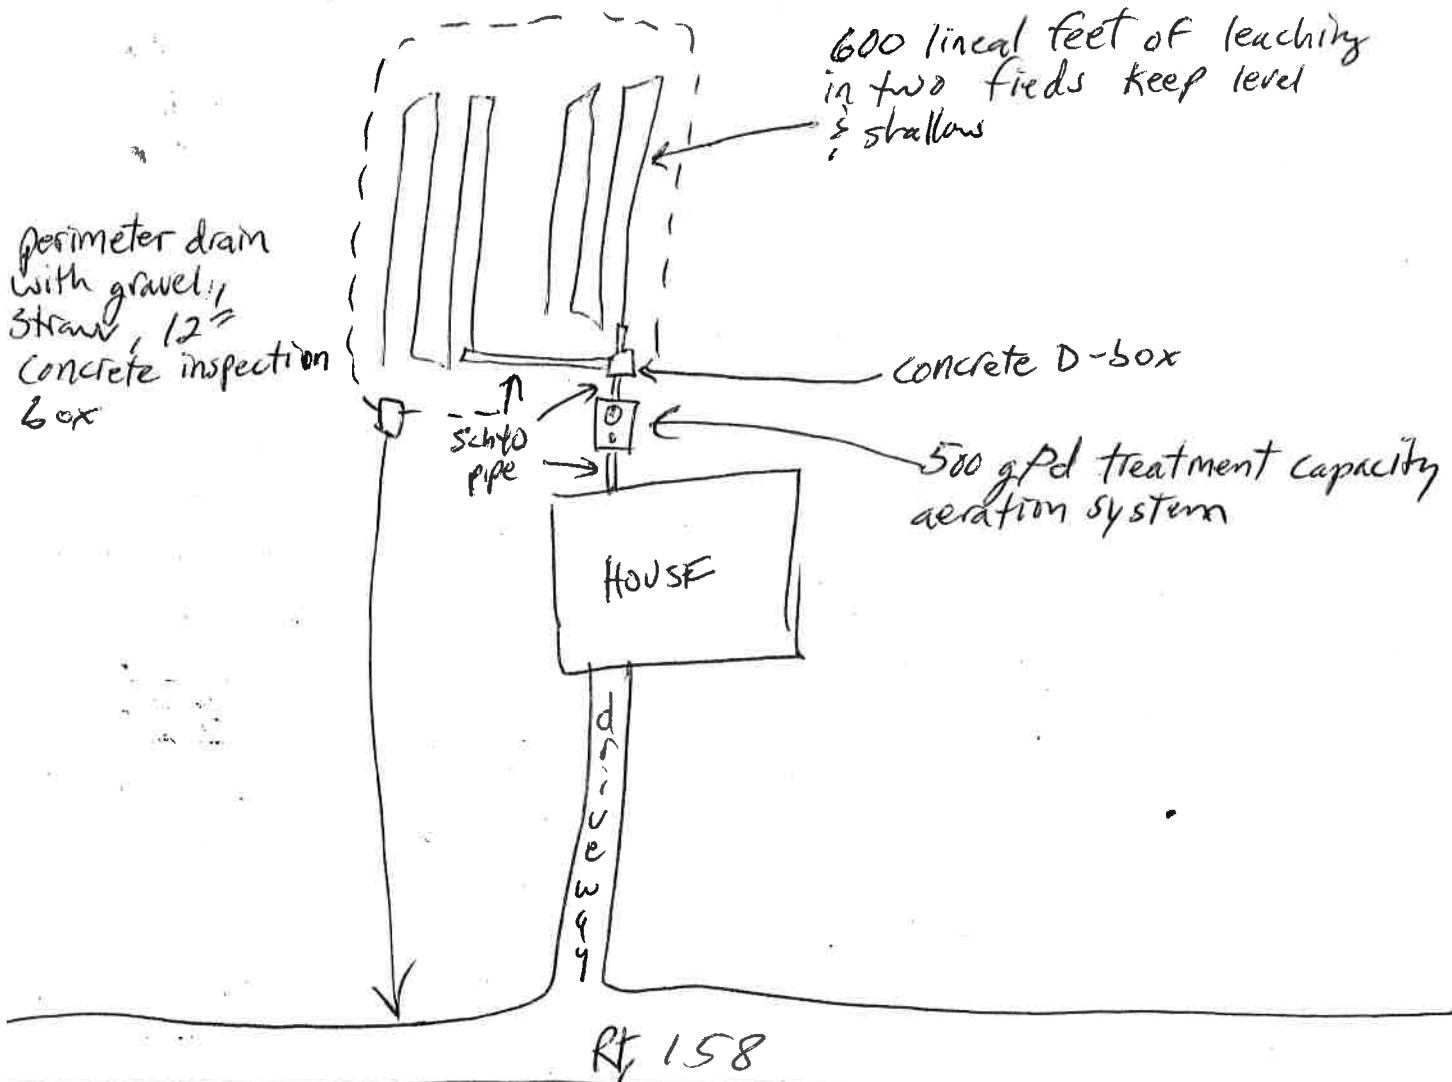 600 lineal feet of leaching
in two fieds keep level
& shallow
perimeter drain
with gravel,
straw, 12"
concrete inspection
box
concrete D-box
sch40
pipe
500 gpd treatment capacity
aeration system
HOUSE
driveway
Rt, 158